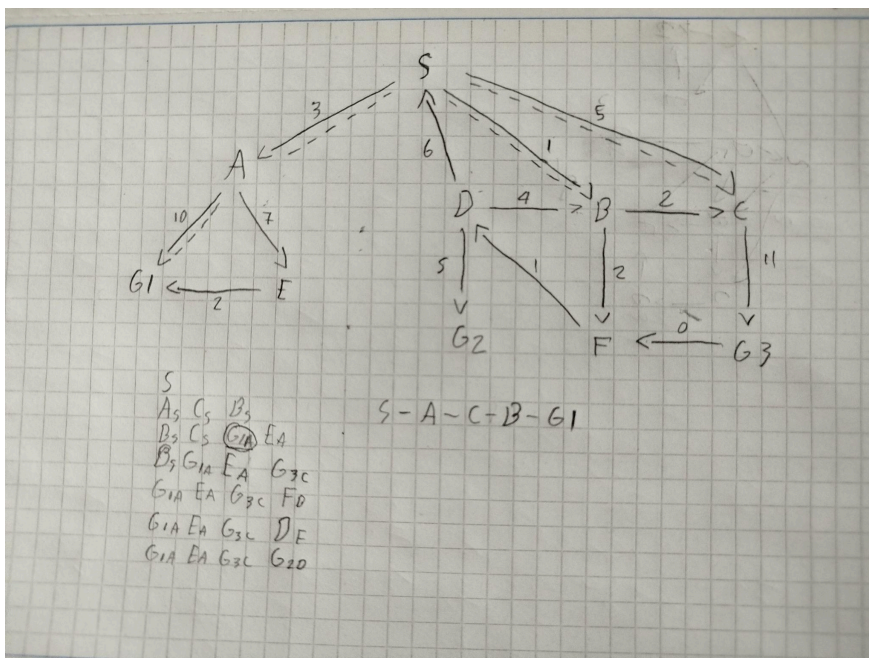 S
3
5
1
6
A
D
4
B
2
C
10
7
G1
2
E
5
1
2
11
G2
F
0
G3
S
As Cs Bs
Bs Cs G1A EA
Bs G1A EA G3C
G1A EA G3C FD
G1A EA G3C DF
G1A EA G3C G2D
S - A - C - B - G1